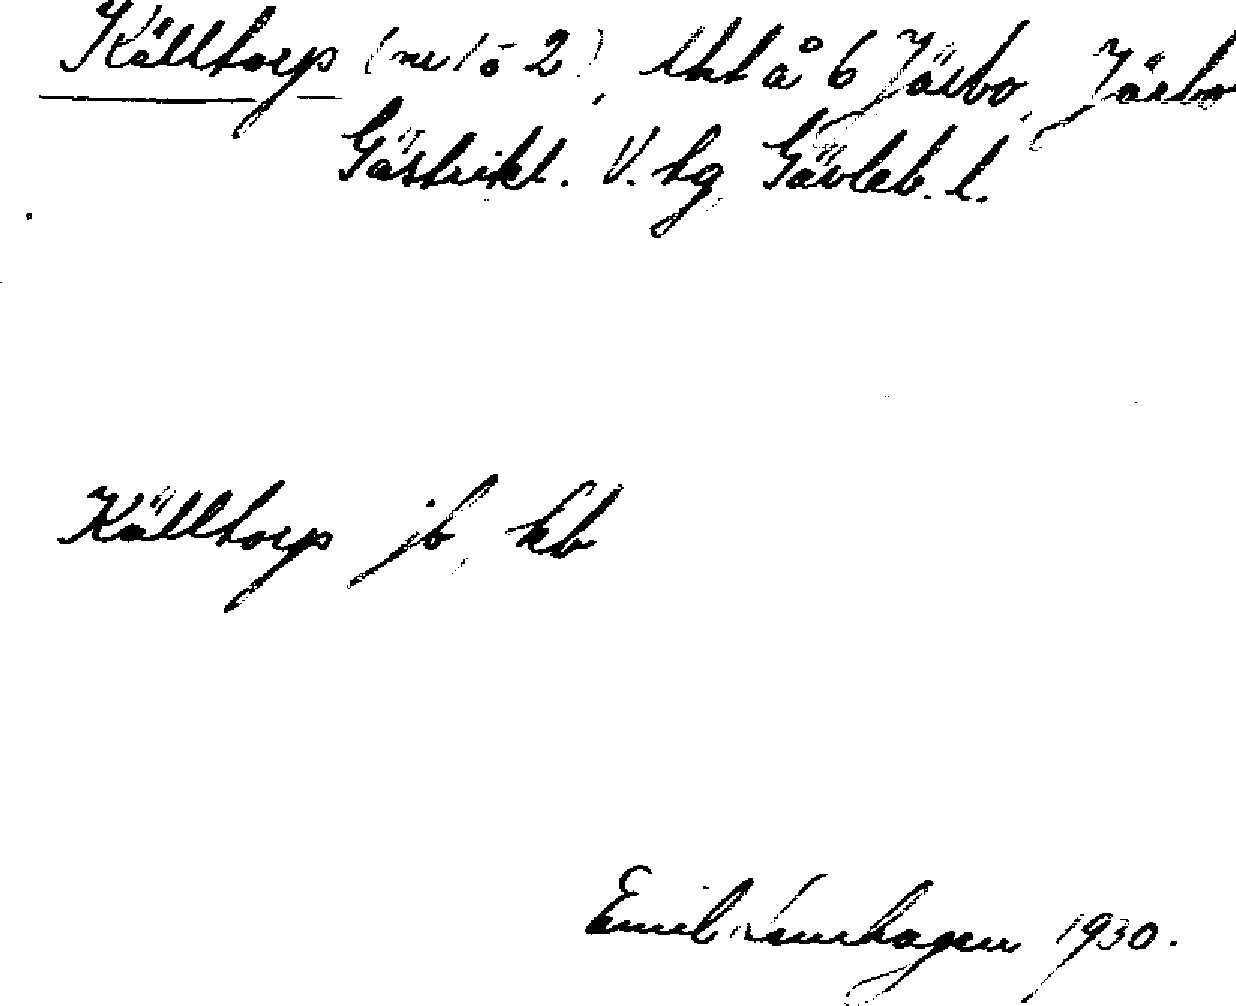 Källtorp (nr 1 o 2), lht å 6 Järbo, Järbo
Gästrikl. V. hg Gävleb. l.
Källtorp jb, kb
Emil 1930.